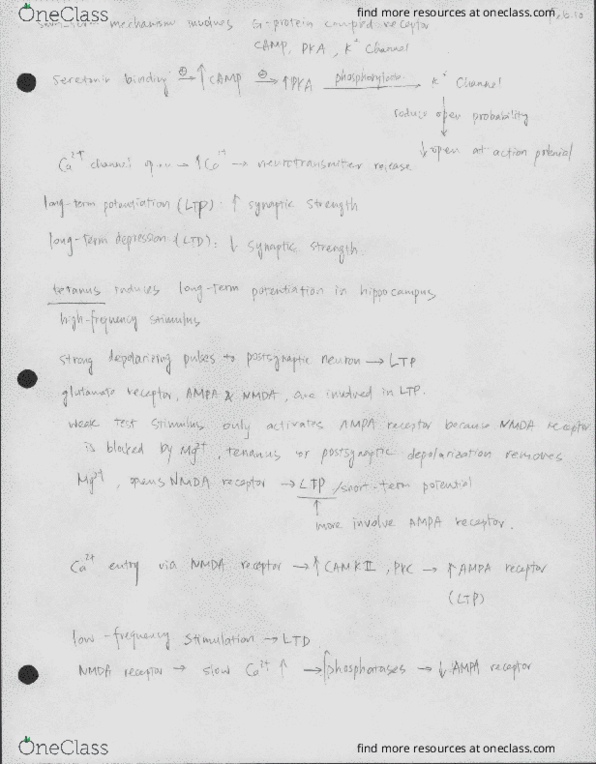 OneClass
find more resources at oneclass.com
mechanism involves G-protein coupled receptor
CAMP, PKA, K+ Channel
Serotonin binding ⊕→ ↑CAMP ⊕→ ↑PKA phosphorylate→ K+ Channel
reduce open probability
↓ open at action potential
Ca2+ channel open → ↑Ca2+ → neurotransmitter release
long-term potentiation (LTP): ↑ synaptic strength
long-term depression (LTD): ↓ synaptic strength.
tetanus induces long-term potentiation in hippocampus
high-frequency stimulus
strong depolarizing pulses to postsynaptic neuron → LTP
glutamate receptor, AMPA & NMDA, are involved in LTP.
weak test stimulus only activates AMPA receptor because NMDA receptor
is blocked by Mg2+, tenanus or postsynaptic depolarization removes
Mg2+, opens NMDA receptor → LTP /short-term potential
↑
more involve AMPA receptor.
Ca2+ entry via NMDA receptor → ↑CAMKII, PKC → ↑ AMPA receptor
(LTP)
low-frequency stimulation → LTD
NMDA receptor → slow Ca2+ ↑ → phosphatases → ↓ AMPA receptor
OneClass
find more resources at oneclass.com